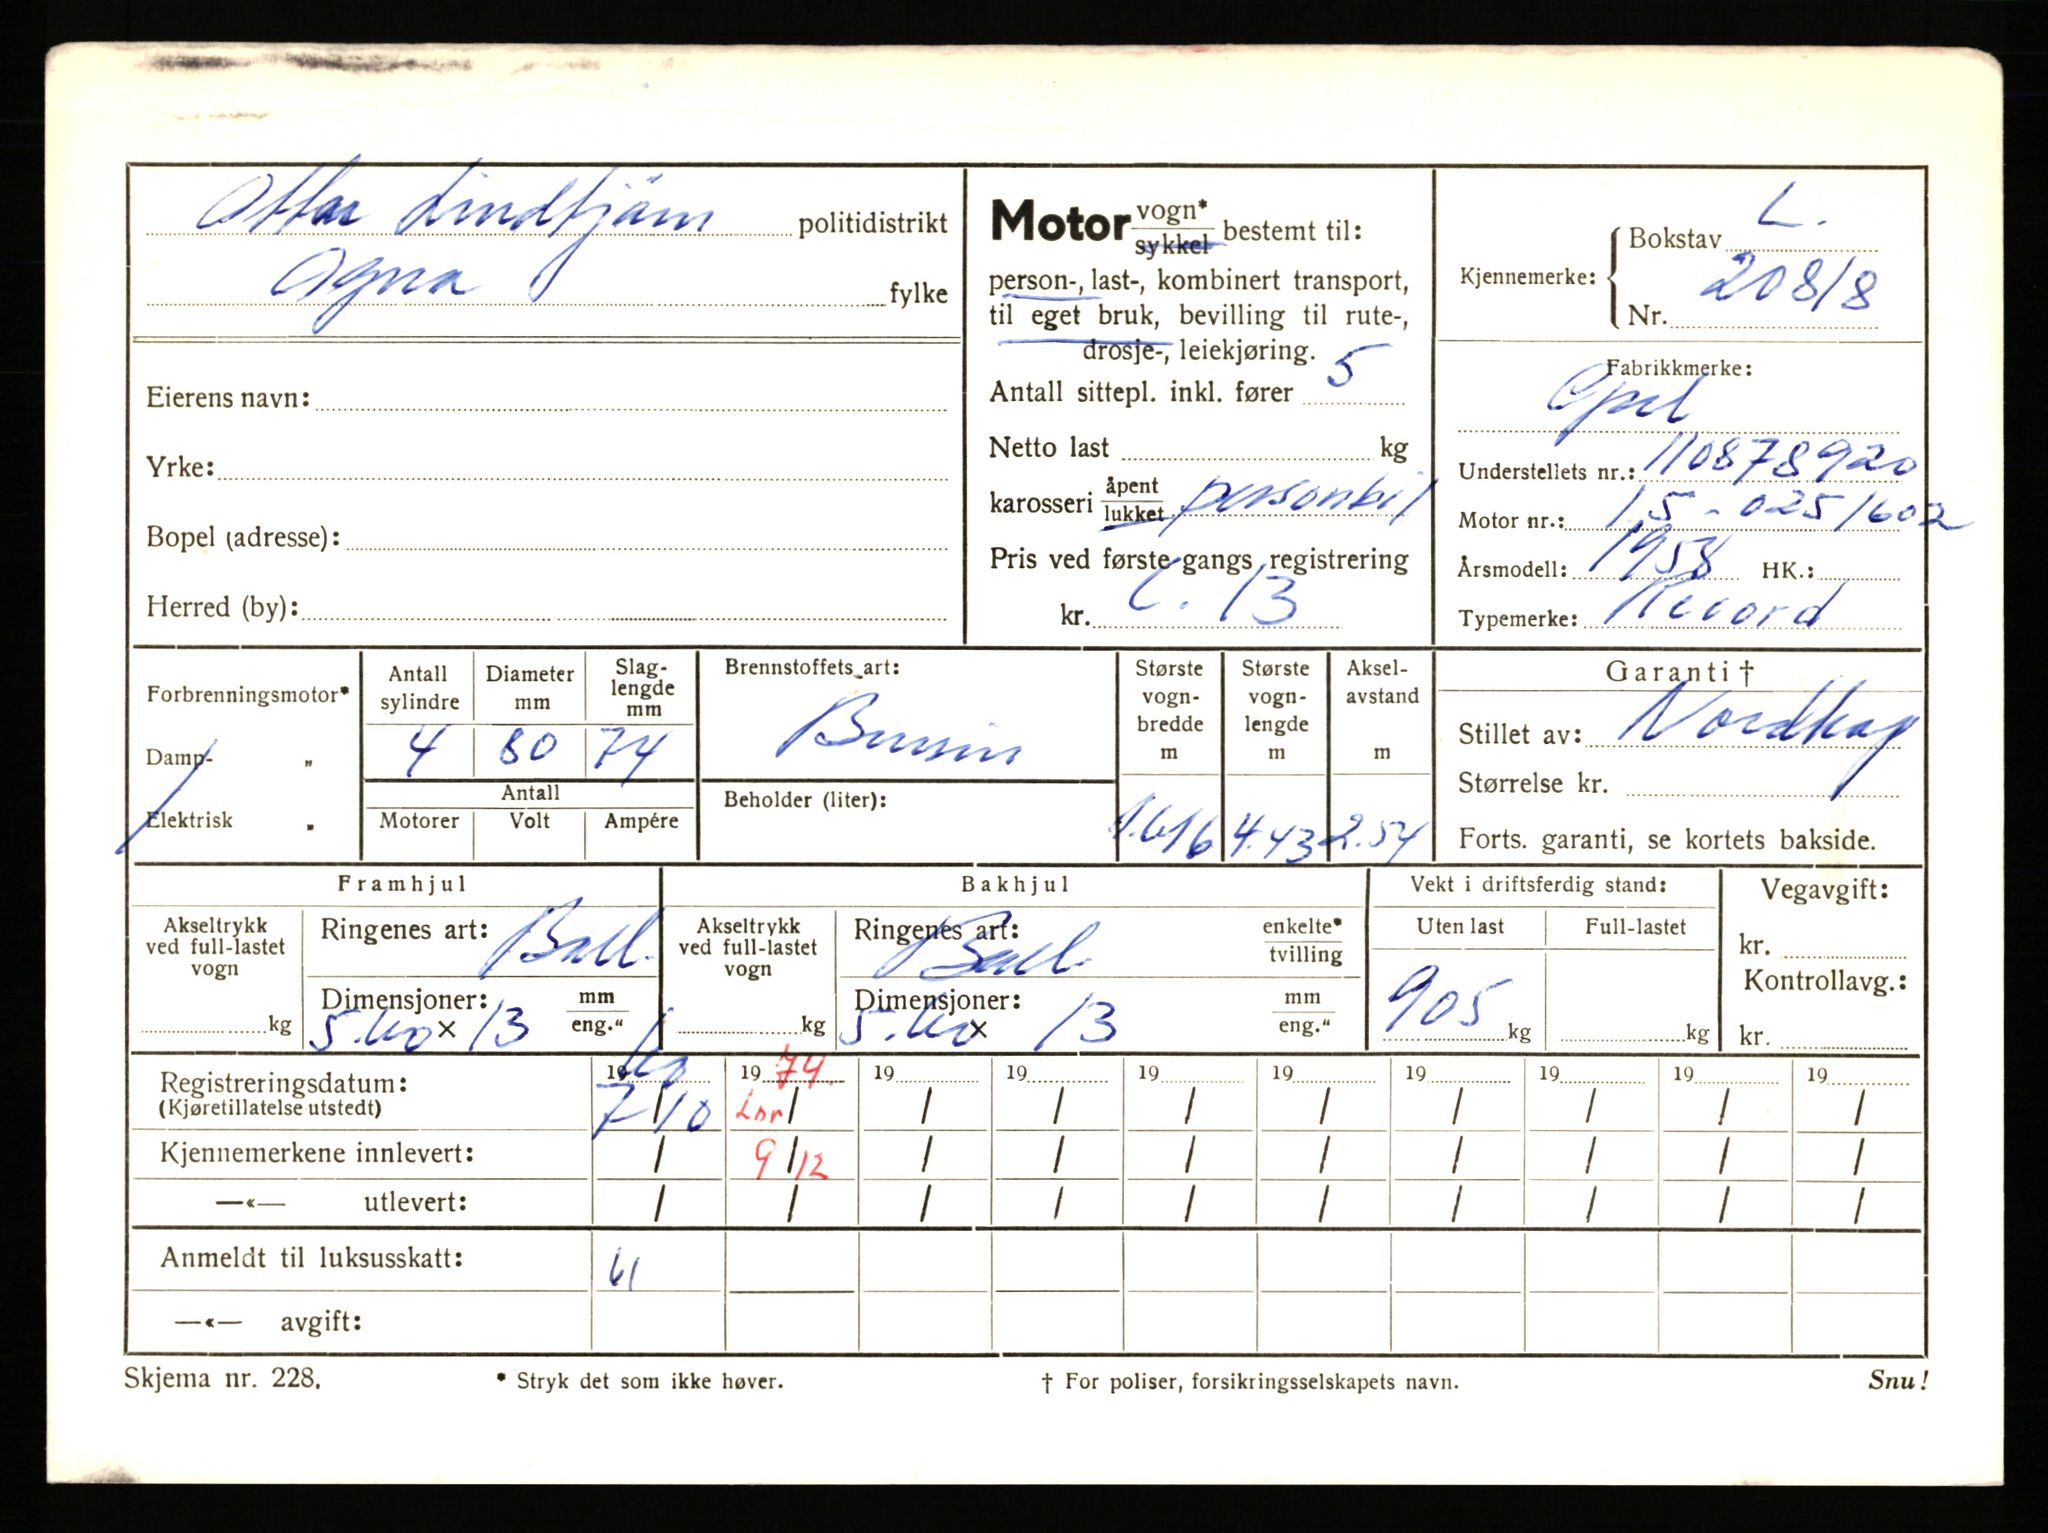 Ottar Lindtjörn politidistrikt
Ogna fylke
Eierens navn:
Yrke:
Bopel (adresse):
Herred (by):
Motor vogn* sykkel bestemt til:
person-, last-, kombinert transport,
til eget bruk, bevilling til rute-,
drosje-, leiekjøring.
Antall sittepl. inkl. fører 5
Netto last kg
karosseri åpent lukket personbil
Pris ved første gangs registrering
kr. C. 13
Kjennemerke: Bokstav L.
Nr. 20818
Fabrikkmerke:
Opel
Understellets nr.: 110878920
Motor nr.: 1,5 - 0251602
Årsmodell: 1958 HK.:
Typemerke: Record
Forbrenningsmotor*
Damp- „
Elektrisk „
Antall sylindre Diameter mm Slag-lengde mm
4 80 74
Antall
Motorer Volt Ampére
Brennstoffets art:
Bensin
Beholder (liter):
Største vogn-bredde m Største vogn-lengde m Aksel-avstand m
1.616 4.43 2.54
Garanti †
Stillet av: Nordkap
Størrelse kr.
Forts. garanti, se kortets bakside.
Framhjul
Akseltrykk ved full-lastet vogn
kg
Ringenes art: Ball.
Dimensjoner: mm eng."
5.60 x 13
Bakhjul
Akseltrykk ved full-lastet vogn
kg
Ringenes art: Ball. enkelte* tvilling
Dimensjoner: mm eng."
5.60 x 13
Vekt i driftsferdig stand:
Uten last Full-lastet
905 kg kg
Vegavgift:
kr.
Kontrollavg.:
kr.
19 60 19 74. 19 19 19 19 19 19 19 19
Registreringsdatum:
(Kjøretillatelse utstedt) 7/10 Lnr / / / / / / / / /
Kjennemerkene innlevert: / 9/12 / / / / / / / /
—«— utlevert: / / / / / / / / / /
Anmeldt til luksusskatt: 61
—«— avgift:
Skjema nr. 228. * Stryk det som ikke høver. † For poliser, forsikringsselskapets navn. Snu!